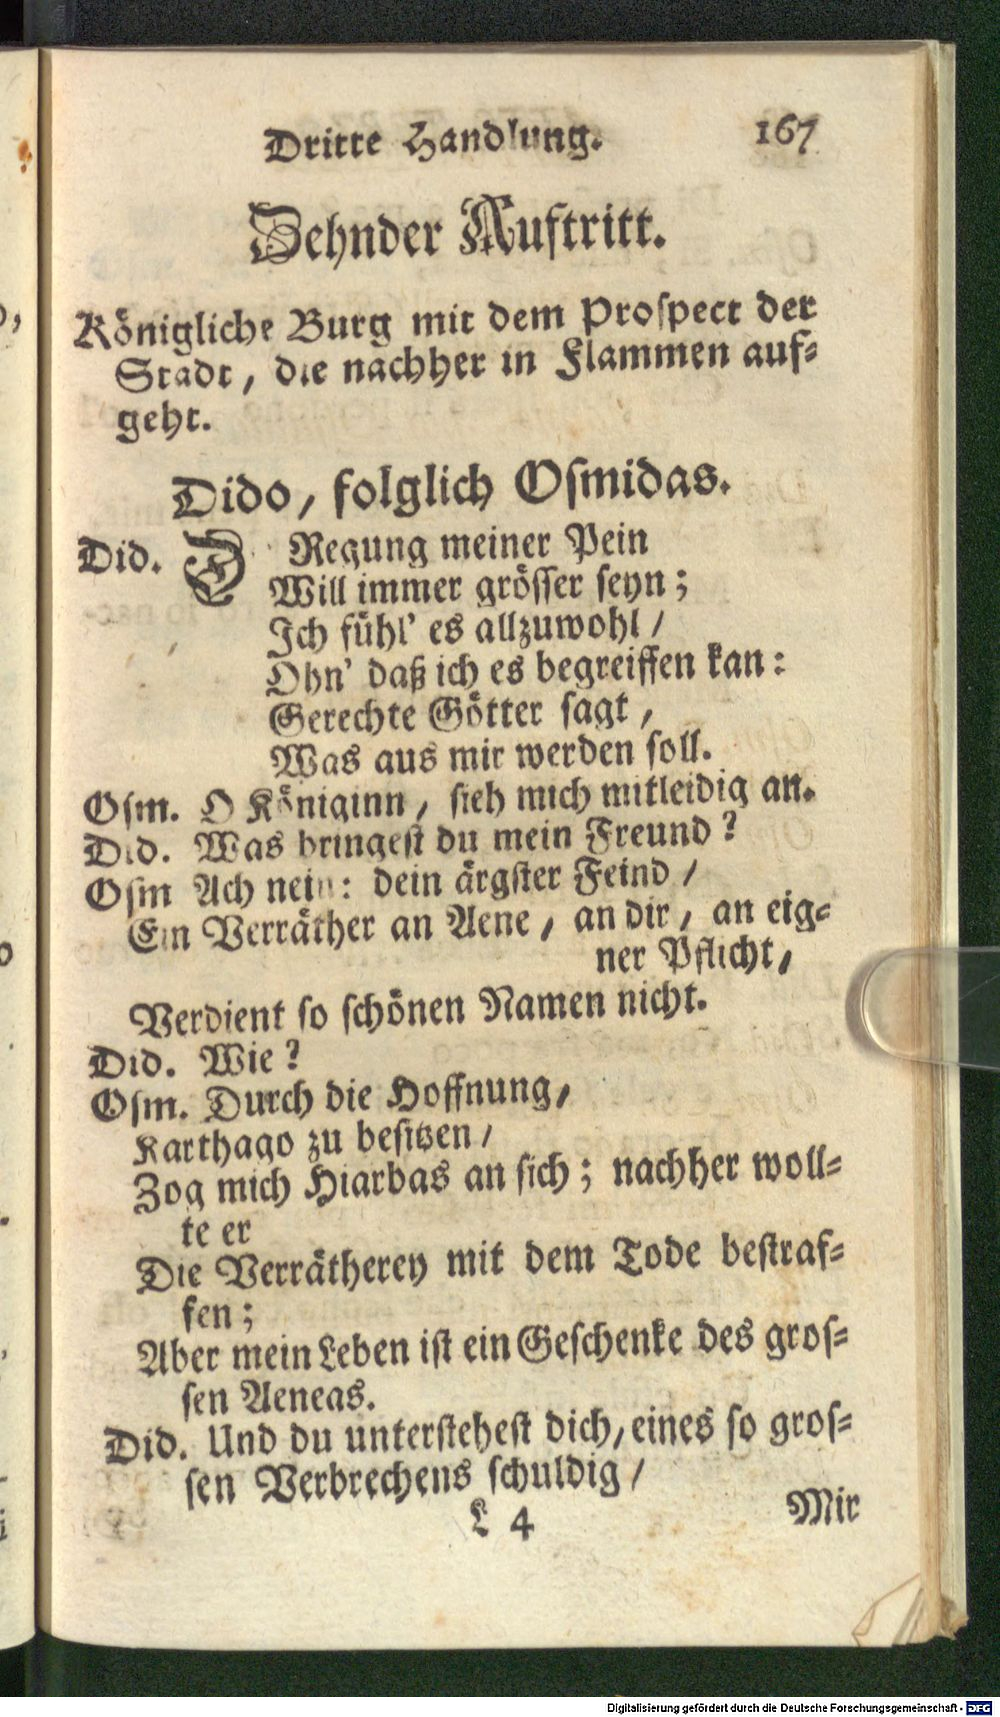 Dritte Handlung. 167
Zehnder Auftritt.
Königliche Burg mit dem Prospect der
Stadt, die nachher in Flammen auf-
geht.
Dido, folglich Osmidas.
Did. J Regung meiner Pein
Will immer grösser seyn;
Ich fühl' es allzuwohl /
Ohn' daß ich es begreiffen kan:
Gerechte Götter sagt,
Was aus mir werden soll.
Osm. O Königinn, sieh mich mitleidig an.
Did. Was bringest du mein Freund?
Osm Ach nein: dein ärgster Feind /
Ein Verräther an Aene, an dir, an eig-
ner Pflicht,
Verdient so schönen Namen nicht.
Did. Wie?
Osm. Durch die Hoffnung,
Karthago zu besitzen /
Zog mich Hiarbas an sich; nachher woll-
te er
Die Verrätherey mit dem Tode bestraf-
fen;
Aber mein Leben ist ein Geschenke des gros-
sen Aeneas.
Did. Und du unterstehest dich, eines so gros-
sen Verbrechens schuldig /
L 4 Mir
Digitalisierung gefördert durch die Deutsche Forschungsgemeinschaft - DFG